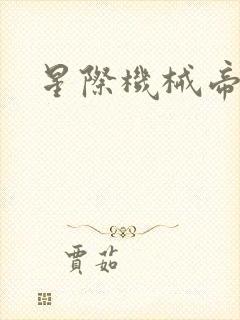 星際機械帝
賈茹